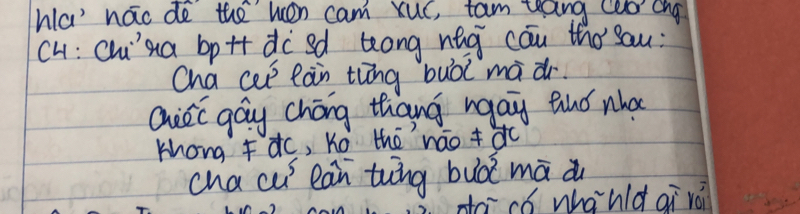 nào để thể hiện cảm xúc, tâm trạng của
C4: Chỉ ra bptt đc sd trong nhg câu thơ sau:
Cha cứ lần từng bước mà đi.
Chiếc gậy chống tháng ngày khó nhọc
Không ≠ đc, ko thể nào ≠ đc
Cha cứ lần từng bước mà đi
đã có gì